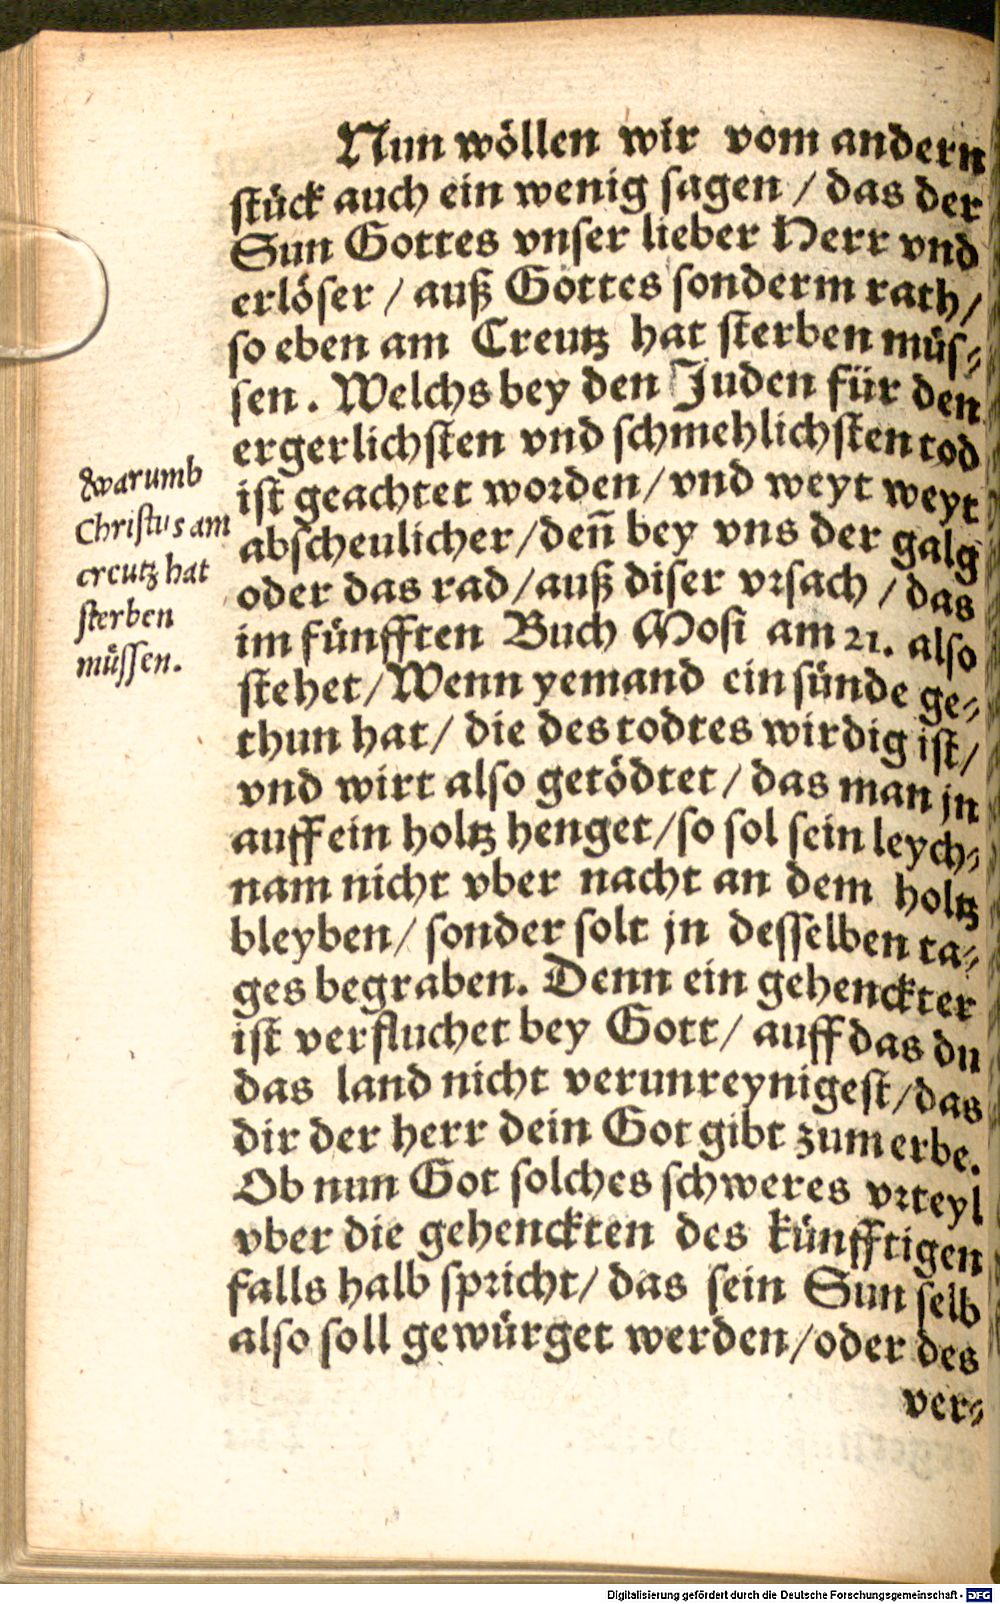 Nun wöllen wir vom andern
stück auch ein wenig sagen / das der
Sun Gottes vnser lieber Herr vnd
erlöser / auß Gottes sonderm rath /
so eben am Creutz hat sterben müs⸗
sen. Welchs bey den Juden für den
ergerlichsten vnd schmehlichsten tod
ist geachtet worden / vnd weyt weyt
abscheulicher / deñ bey vns der galg
oder das rad / auß diser vrsach / das
im fünfften Buch Mosi am 21. also
stehet / Wenn yemand ein sünde ge⸗
thun hat / die des todtes wirdig ist /
vnd wirt also getödtet / das man jn
auff ein holtz henget / so sol sein leych⸗
nam nicht vber nacht an dem holtz
bleyben / sonder solt jn desselben ta⸗
ges begraben. Denn ein gehenckter
ist verfluchet bey Gott / auff das du
das land nicht verunreynigest / das
dir der herr dein Got gibt zum erbe.
Ob nun Got solches schweres vrteyl
vber die gehenckten des künfftigen
falls halb spricht / das sein Sun selb
also soll gewürget werden / oder des
ver⸗
Warumb
Christus am
creutz hat
sterben
müssen.
Digitalisierung gefördert durch die Deutsche Forschungsgemeinschaft - DFG